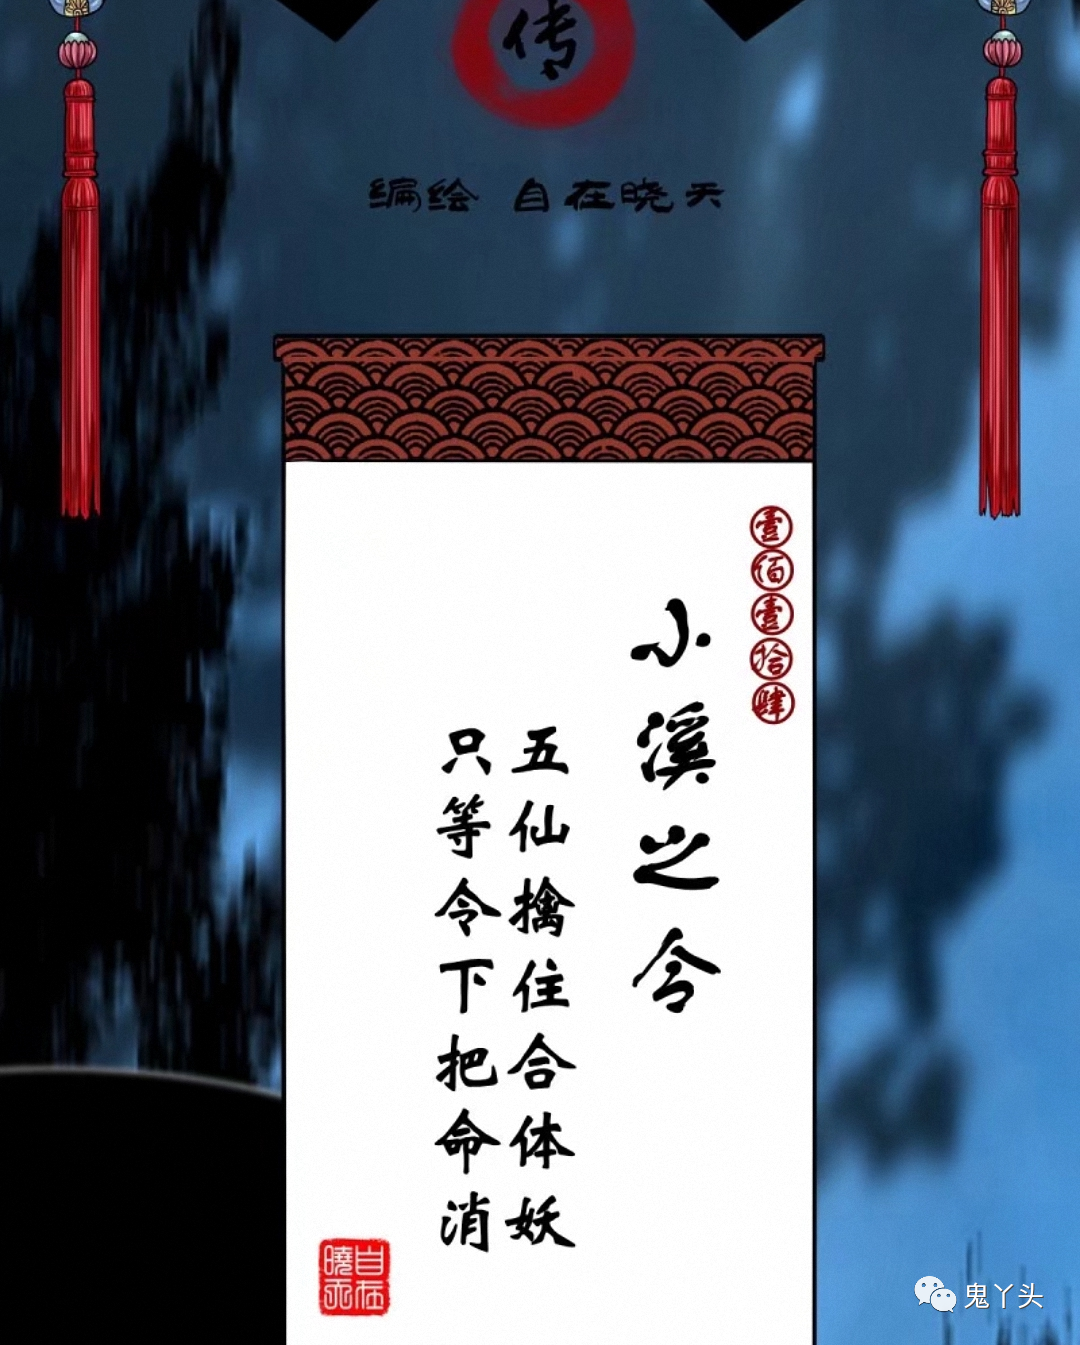 传
编绘 自在晓天
壹佰壹拾肆
小溪之令
五仙擒住合体妖
只等令下把命消
自在
曉天
鬼丫头